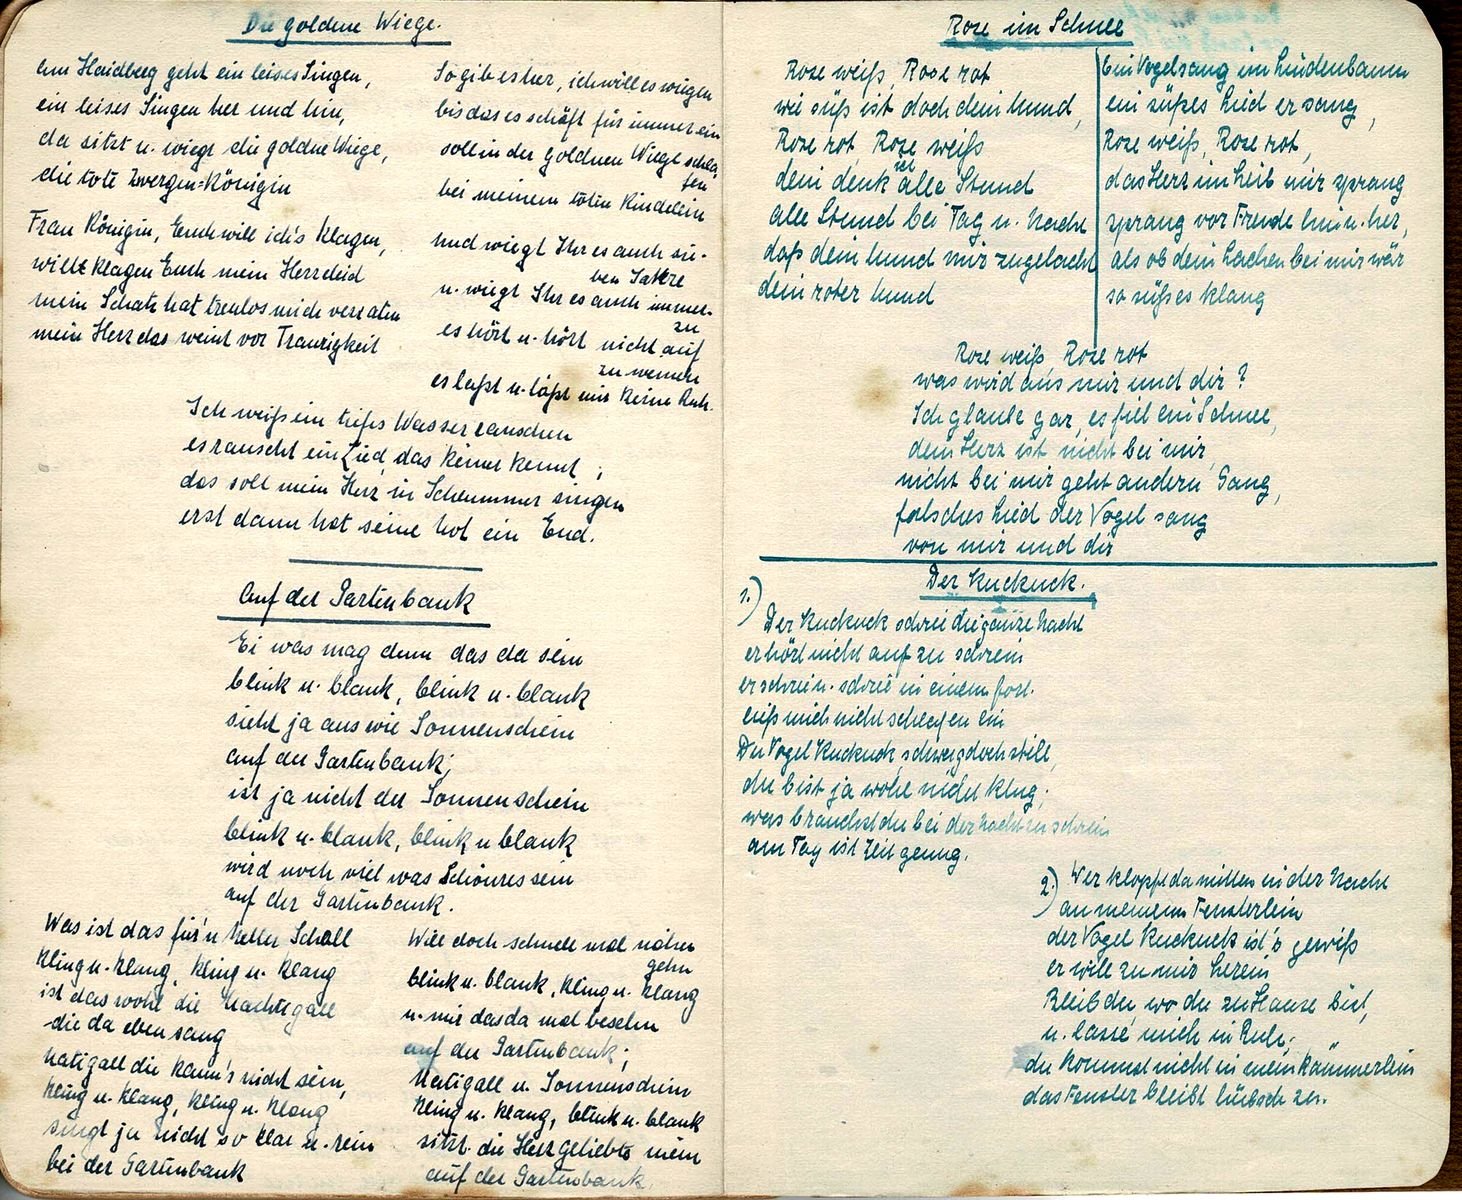 Die goldene Wiege.
Am Haidberg geht ein leises Singen,
ein leises Singen her und hin,
da sitzt u. wiegt die goldne Wiege,
die tote Zwergen-Königin
Frau Königin, Euch will ich's klagen,
will klagen Euch mein Herzeleid
mein Schatz hat treulos mich verraten
mein Herz das weint vor Traurigkeit
So gib es her, ich will es wiegen
bis das es schläft für immer ein
soll in der goldnen Wiege schla-
fen
bei meinem toten Kindelein
Und wiegt Ihr es auch sie-
ben Jahre
u. wiegt Ihr es auch immer-
zu
es hört u. hört nicht auf
zu weinen
es laßt u. läßt mir keine Ruh.
Ich weiß ein tiefes Wasser rauschen
es rauscht ein Lied, das keiner kennt,
das soll mein Herz in Schlummer singen
erst dann hat seine Not ein End.
Auf der Gartenbank
Ei was mag denn das da sein
blink u. blank, blink u. blank
sieht ja aus wie Sonnenschein
auf der Gartenbank;
ist ja nicht der Sonnenschein
blink u. blank, blink u blank
wird noch viel was Schönres sein
auf der Gartenbank.
Was ist das für'n heller Schall
Kling u. Klang, Kling u. Klang
ist das wohl die Nachtigall
die da eben sang
Natigall die kann's nicht sein,
Kling u. Klang, Kling u. Klang
singt ja nicht so klar u. rein
bei der Gartenbank
Will doch schnell mal näher
gehn
blink u. blank, Kling u. Klang
u. mir das da mal besehn
auf der Gartenbank;
Natigall u. Sonnenschein
Kling u. Klang, blink u. blank
sitzt die Herzgeliebte mein
auf der Gartenbank.
Rose im Schnee
Rose weiß, Rose rot
wie süß ist doch dein Mund,
Rose rot, Rose weiß
dein denk ich alle Stund
alle Stund bei Tag u. Nacht
daß dein Mund mir zugelacht
dein roter Mund
Ein Vogel sang im Lindenbaum
ein süßes Lied er sang,
Rose weiß, Rose rot,
das Herz im Leib mir sprang
sprang vor Freude hin u. her,
als ob dein Lachen bei mir wär
so süß es klang
Rose weiß, Rose rot
was wird aus mir und dir?
Ich glaube gar, es fiel ein Schnee,
dein Herz ist nicht bei mir,
nicht bei mir geht andern Gang,
falsches Lied der Vogel sang
von mir und dir
Der Kuckuck.
1.)
Der Kuckuck schrei die ganze Nacht
er hört nicht auf zu schrein
er schrei u. schrie in einem fort.
ließ mich nicht schlafen ein
Du Vogel Kuckuck, schweig doch still,
du bist ja wohl nicht klug;
was brauchst du bei der Nacht zu schrein
am Tag ist Zeit genug.
2.) Wer klopft da mitten in der Nacht
an meinem Fensterlein
der Vogel Kuckuck ist's gewiß
er will zu mir herein
Bleib du wo du zu Hause bist,
u. lasse mich in Ruh;
du kommst nicht in mein Kämmerlein
das Fenster bleibt hübsch zu.